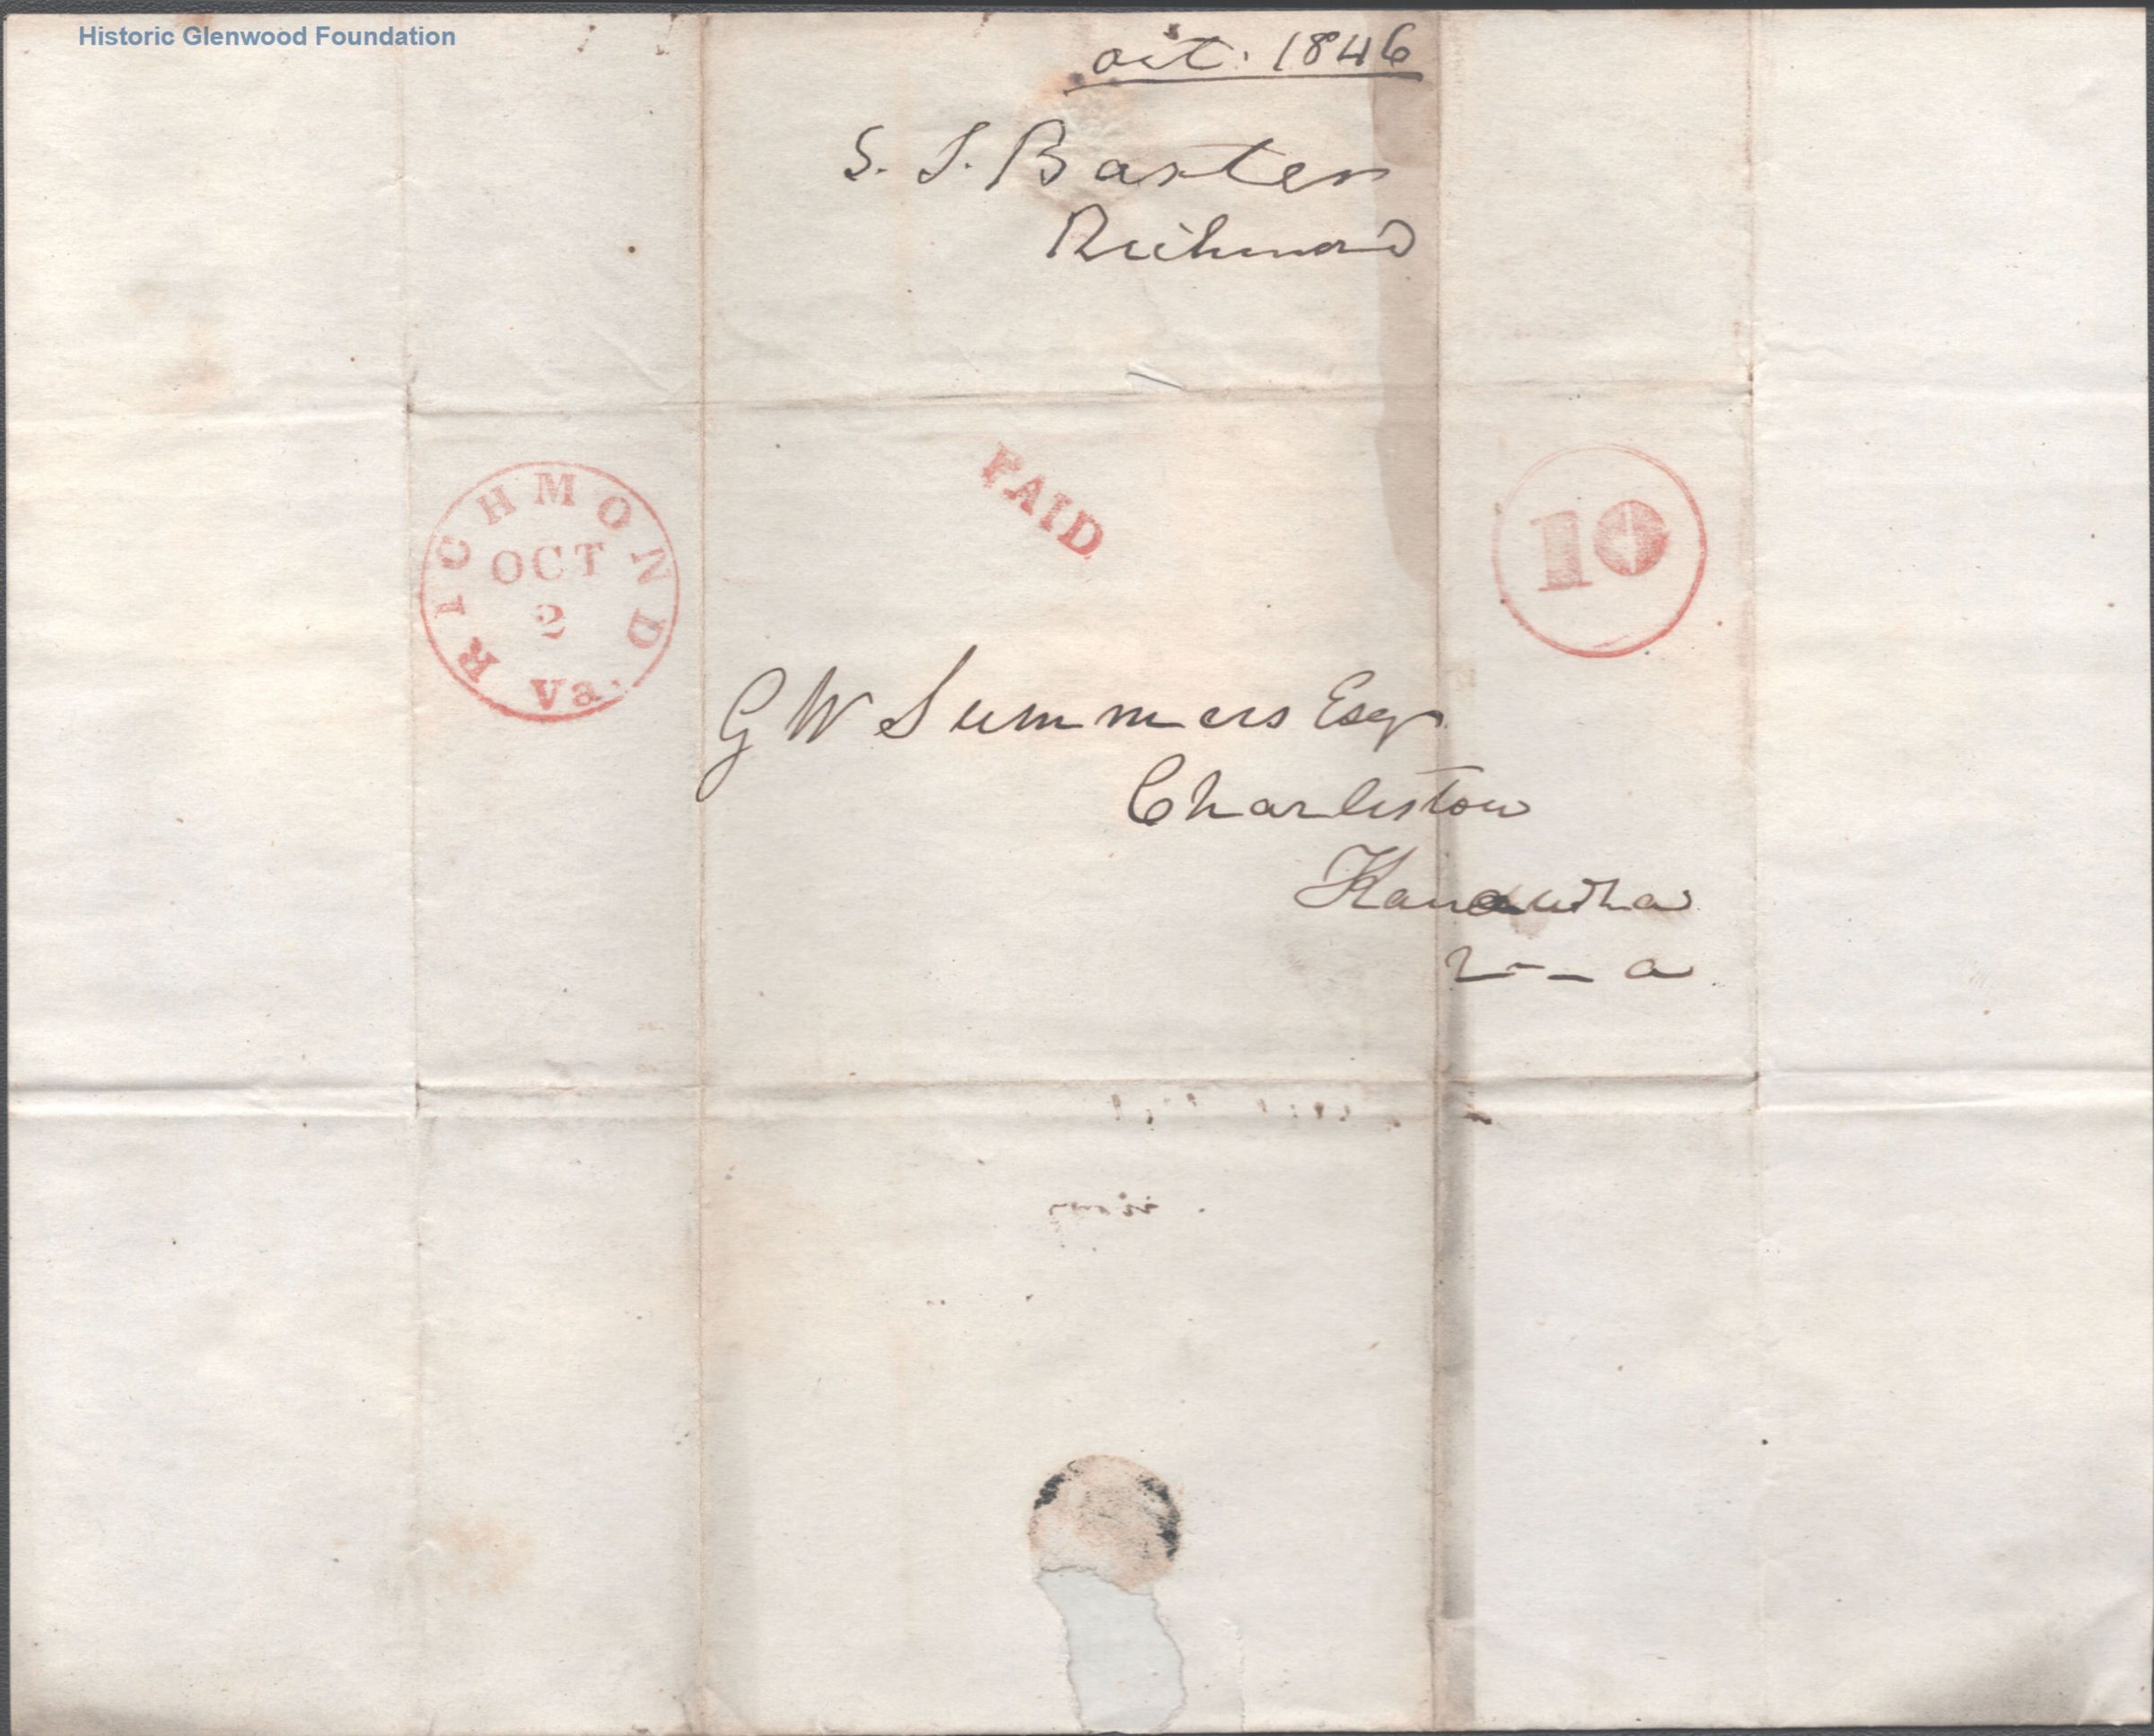 Historic Glenwood Foundation
Oct. 1846
S. S. Baxter
Richmond
RICHMOND
OCT
2
Va.
PAID
10
G W Summers Esqr
Charleston
Kanawha
V--a